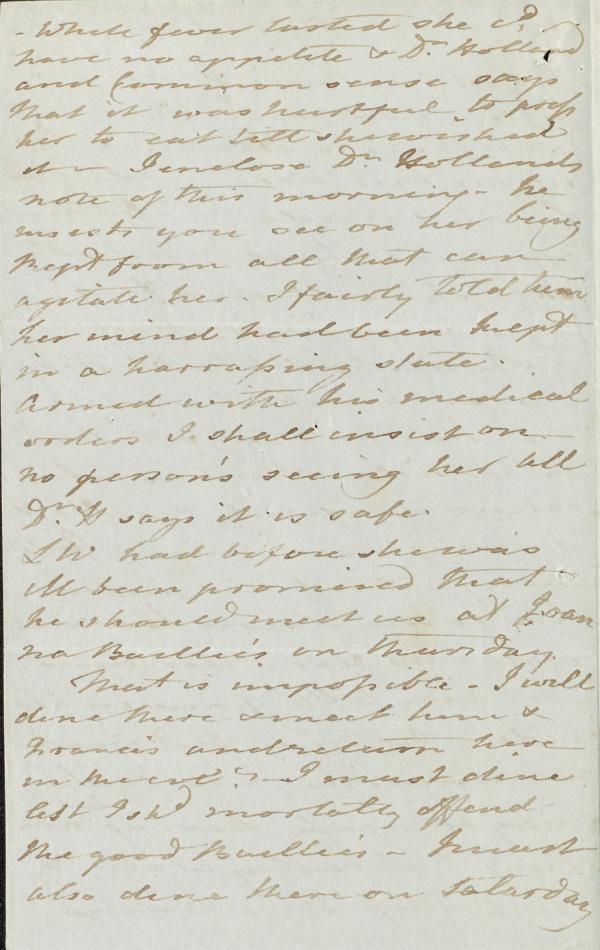 - While fever lasted she cd
have no appetite & Dr Holland
and Common sense says
that it was hurtful to press
her to eat till she wished
it - I enclose Dr Hollands
note of this morning - he
insists you see on her being
kept from all that can
agitate her. I fairly told him
her mind had been kept
in a harrassing state.
Armed with his medical
orders I shall insist on
no person's seeing her till
Dr H says it is safe.
LW had before she was
ill been promised that
he should meet us at Joan
na Baillie's on Thursday.
That is impossible - I will
dine there & meet him &
Francis and return here
in the eveg - I must dine
lest I shd mortally offend
the good Baillies - I must
also dine there on Saturday